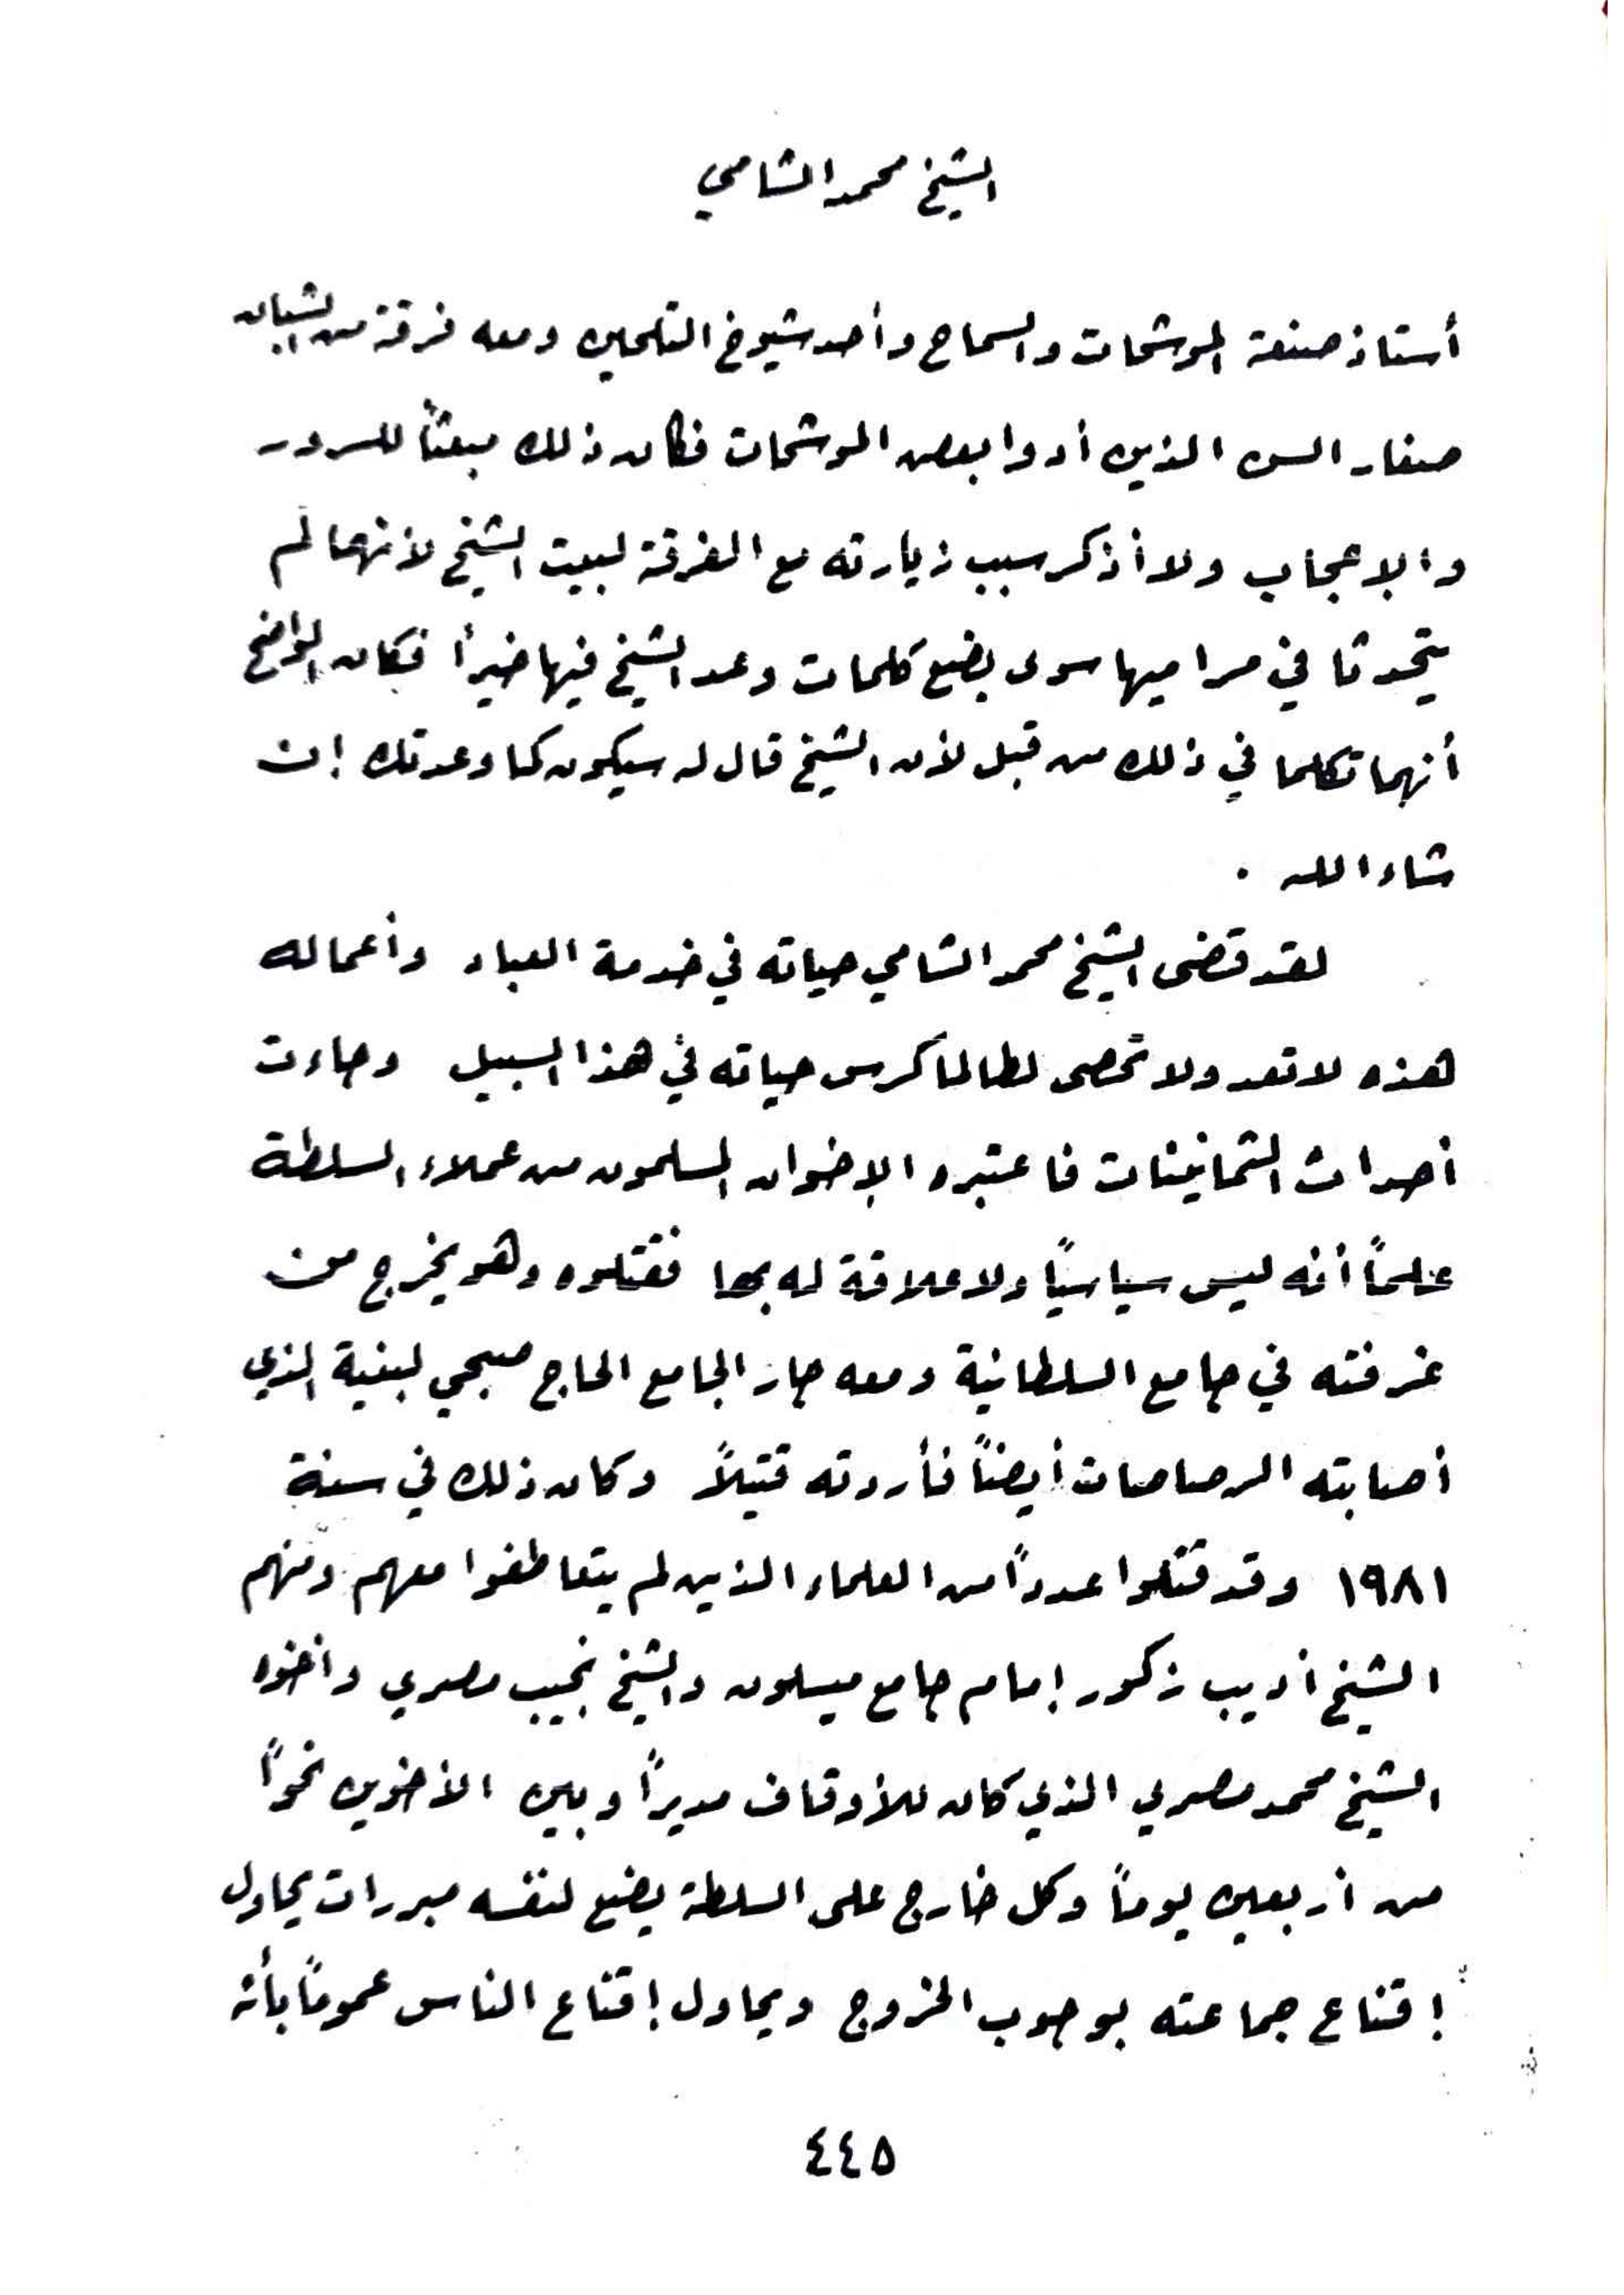 الشيخ محمد الشامي
أستاذ صنعة الموشحات والسماح وأحد شيوخ التلحين ومعه فرقة من الشبان
صغار السن الذين أدوا بعض الموشحات فكان ذلك مبعثاً للسرور
والإعجاب ولا أذكر سبب زيارته مع الفرقة لبيت الشيخ لأنهما لم
يتحدثا في مراميها سوى بضع كلمات وعد الشيخ فيها خيراً فكان الواضح
أنهما تكلما في ذلك من قبل لأن الشيخ قال له سيكون كما وعدتك إن
شاء الله .
لقد قضى الشيخ محمد الشامي حياته في خدمة العباد وأعماله
هذه لا تعد ولا تحصى لطالما كرس حياته في هذا السبيل وجاءت
أحداث الثمانينات فاعتبره الإخوان المسلمون من عملاء السلطة
علماً أنه ليس سياسياً ولا علاقة له بها فقتلوه وهو يخرج من
غرفته في جامع السلطانية ومعه جار الجامع الحاج صبحي لبنية الذي
أصابته الرصاصات أيضاً فأردته قتيلاً وكان ذلك في سنة
١٩٨١ وقد قتلوا عدداً من العلماء الذين لم يتعاطفوا معهم ومنهم
الشيخ أديب زكور إمام جامع ميسلون والشيخ نجيب مصري وأخوه
الشيخ محمد مصري الذي كان للأوقاف مديراً وبين الأخوين نحواً
من أربعين يوماً وكل خارج على السلطة يضع لنفسه مبررات يحاول
إقناع جماعته بوجوب الخروج ويحاول إقناع الناس عموماً بأن
٤٤٥